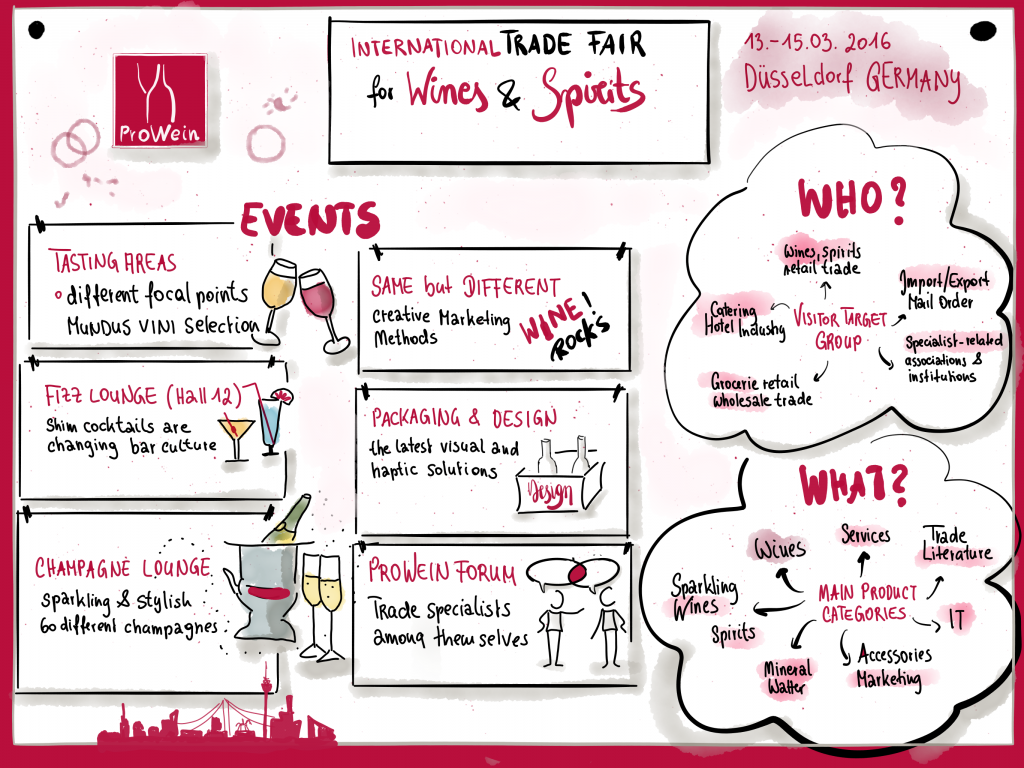 ProWein
INTERNATIONAL TRADE FAIR
for Wines & Spirits
13.-15.03. 2016
DÜSSELDORF GERMANY
EVENTS
TASTING AREAS
different focal points
MUNDUS VINI Selection
FIZZ LOUNGE (Hall 12)
Shim cocktails are
changing bar culture
CHAMPAGNE LOUNGE
sparkling & stylish
60 different champagnes
SAME but DIFFERENT
creative Marketing
Methods
WINE!
Rocks
PACKAGING & DESIGN
the latest visual and
haptic solutions
Design
PROWEIN FORUM
Trade specialists
among themselves
WHO?
Wines, spirits
retail trade
Import/Export
Mail Order
Catering
Hotel Industry
VISITOR TARGET
GROUP
Specialist-related
associations &
institutions
Grocerie retail
wholesale trade
WHAT?
Wines
Services
Trade
Literature
Sparkling
Wines
MAIN PRODUCT
CATEGORIES
IT
Spirits
Mineral
Watter
Accessories
Marketing